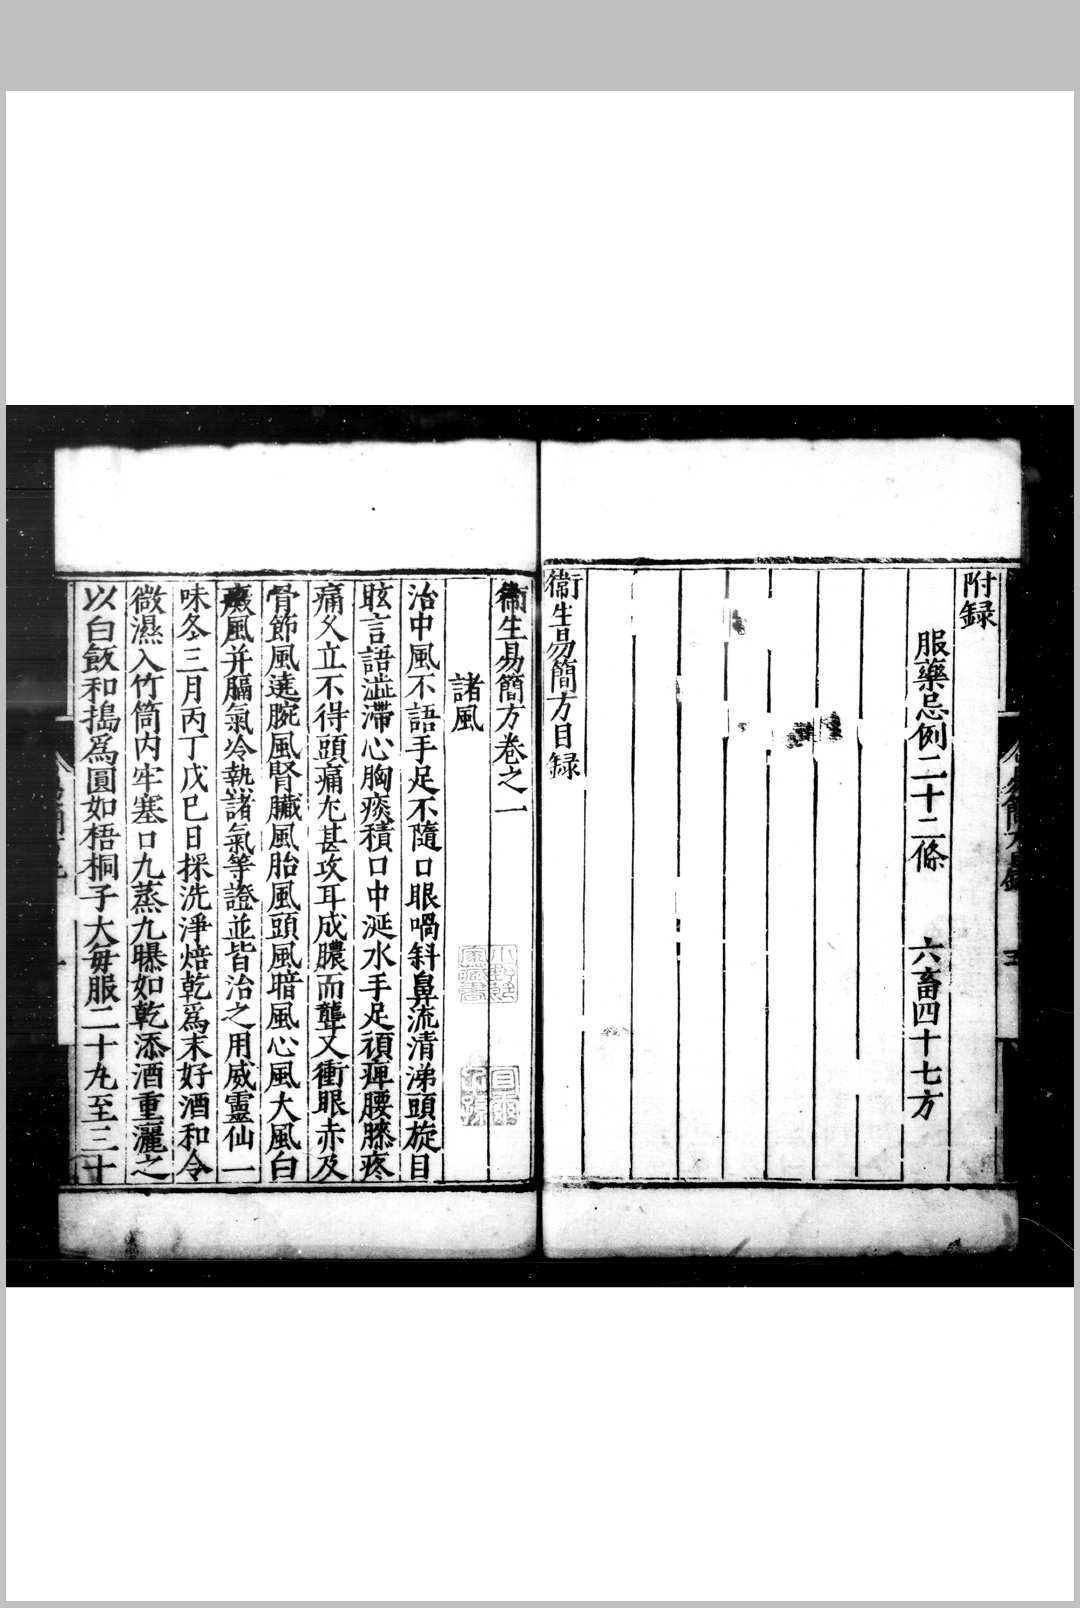 附録
服藥忌例二十二條　六畜四十七方
衞生易簡方目録
衞生易簡方卷之一
諸風
治中風不語手足不隨口眼喎斜鼻流清涕頭旋目
眩言語澁滯心胸痰積口中涎水手足頑痺腰膝疼
痛久立不得頭痛尤甚攻耳成膿而聾又衝眼赤及
骨節風遶腕風腎臟風胎風頭風暗風心風大風白
癜風并膈氣冷熱諸氣等證並皆治之用威靈仙一
味冬三月丙丁戊巳日採洗淨焙乾爲末好酒和令
微濕入竹筒内牢塞口九蒸九曝如乾添酒重灑之
以白飯和搗爲圓如梧桐子大每服二十丸至三十